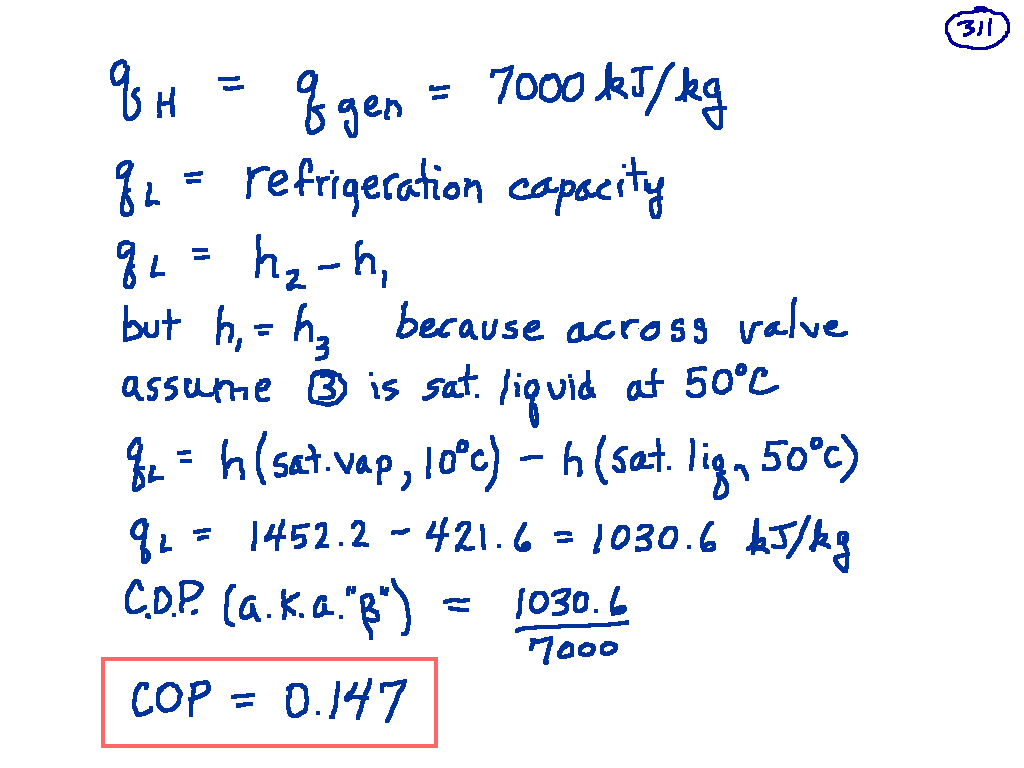 311
qH = qgen = 7000 kJ/kg
qL = refrigeration capacity
qL = h2 - h1
but h1 = h3 because across valve
assume ③ is sat. liquid at 50°C
qL = h(sat.vap, 10°C) - h(sat. liq, 50°C)
qL = 1452.2 - 421.6 = 1030.6 kJ/kg
C.O.P. (a.k.a. "β") = 1030.6
7000
COP = 0.147